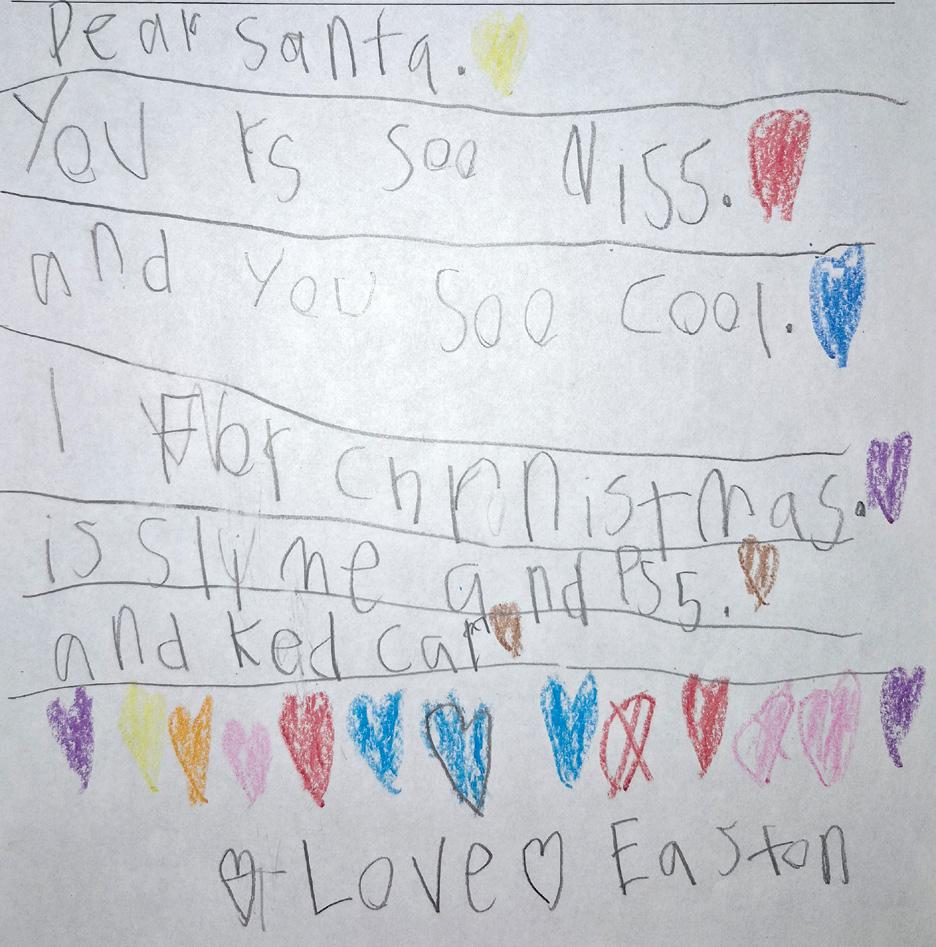 Dear Santa.
You is soo Niss.
and you soo cool.
I For chrnistmas.
is Slyme and PS5.
and Ked car
Love Easton